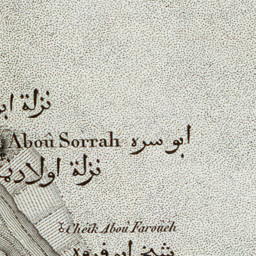 نزلة ابو
Aboû Sorrah ابو سره
نزلة اولاد
Cheîk Aboû Faroûeh
شيخ ابو فروه